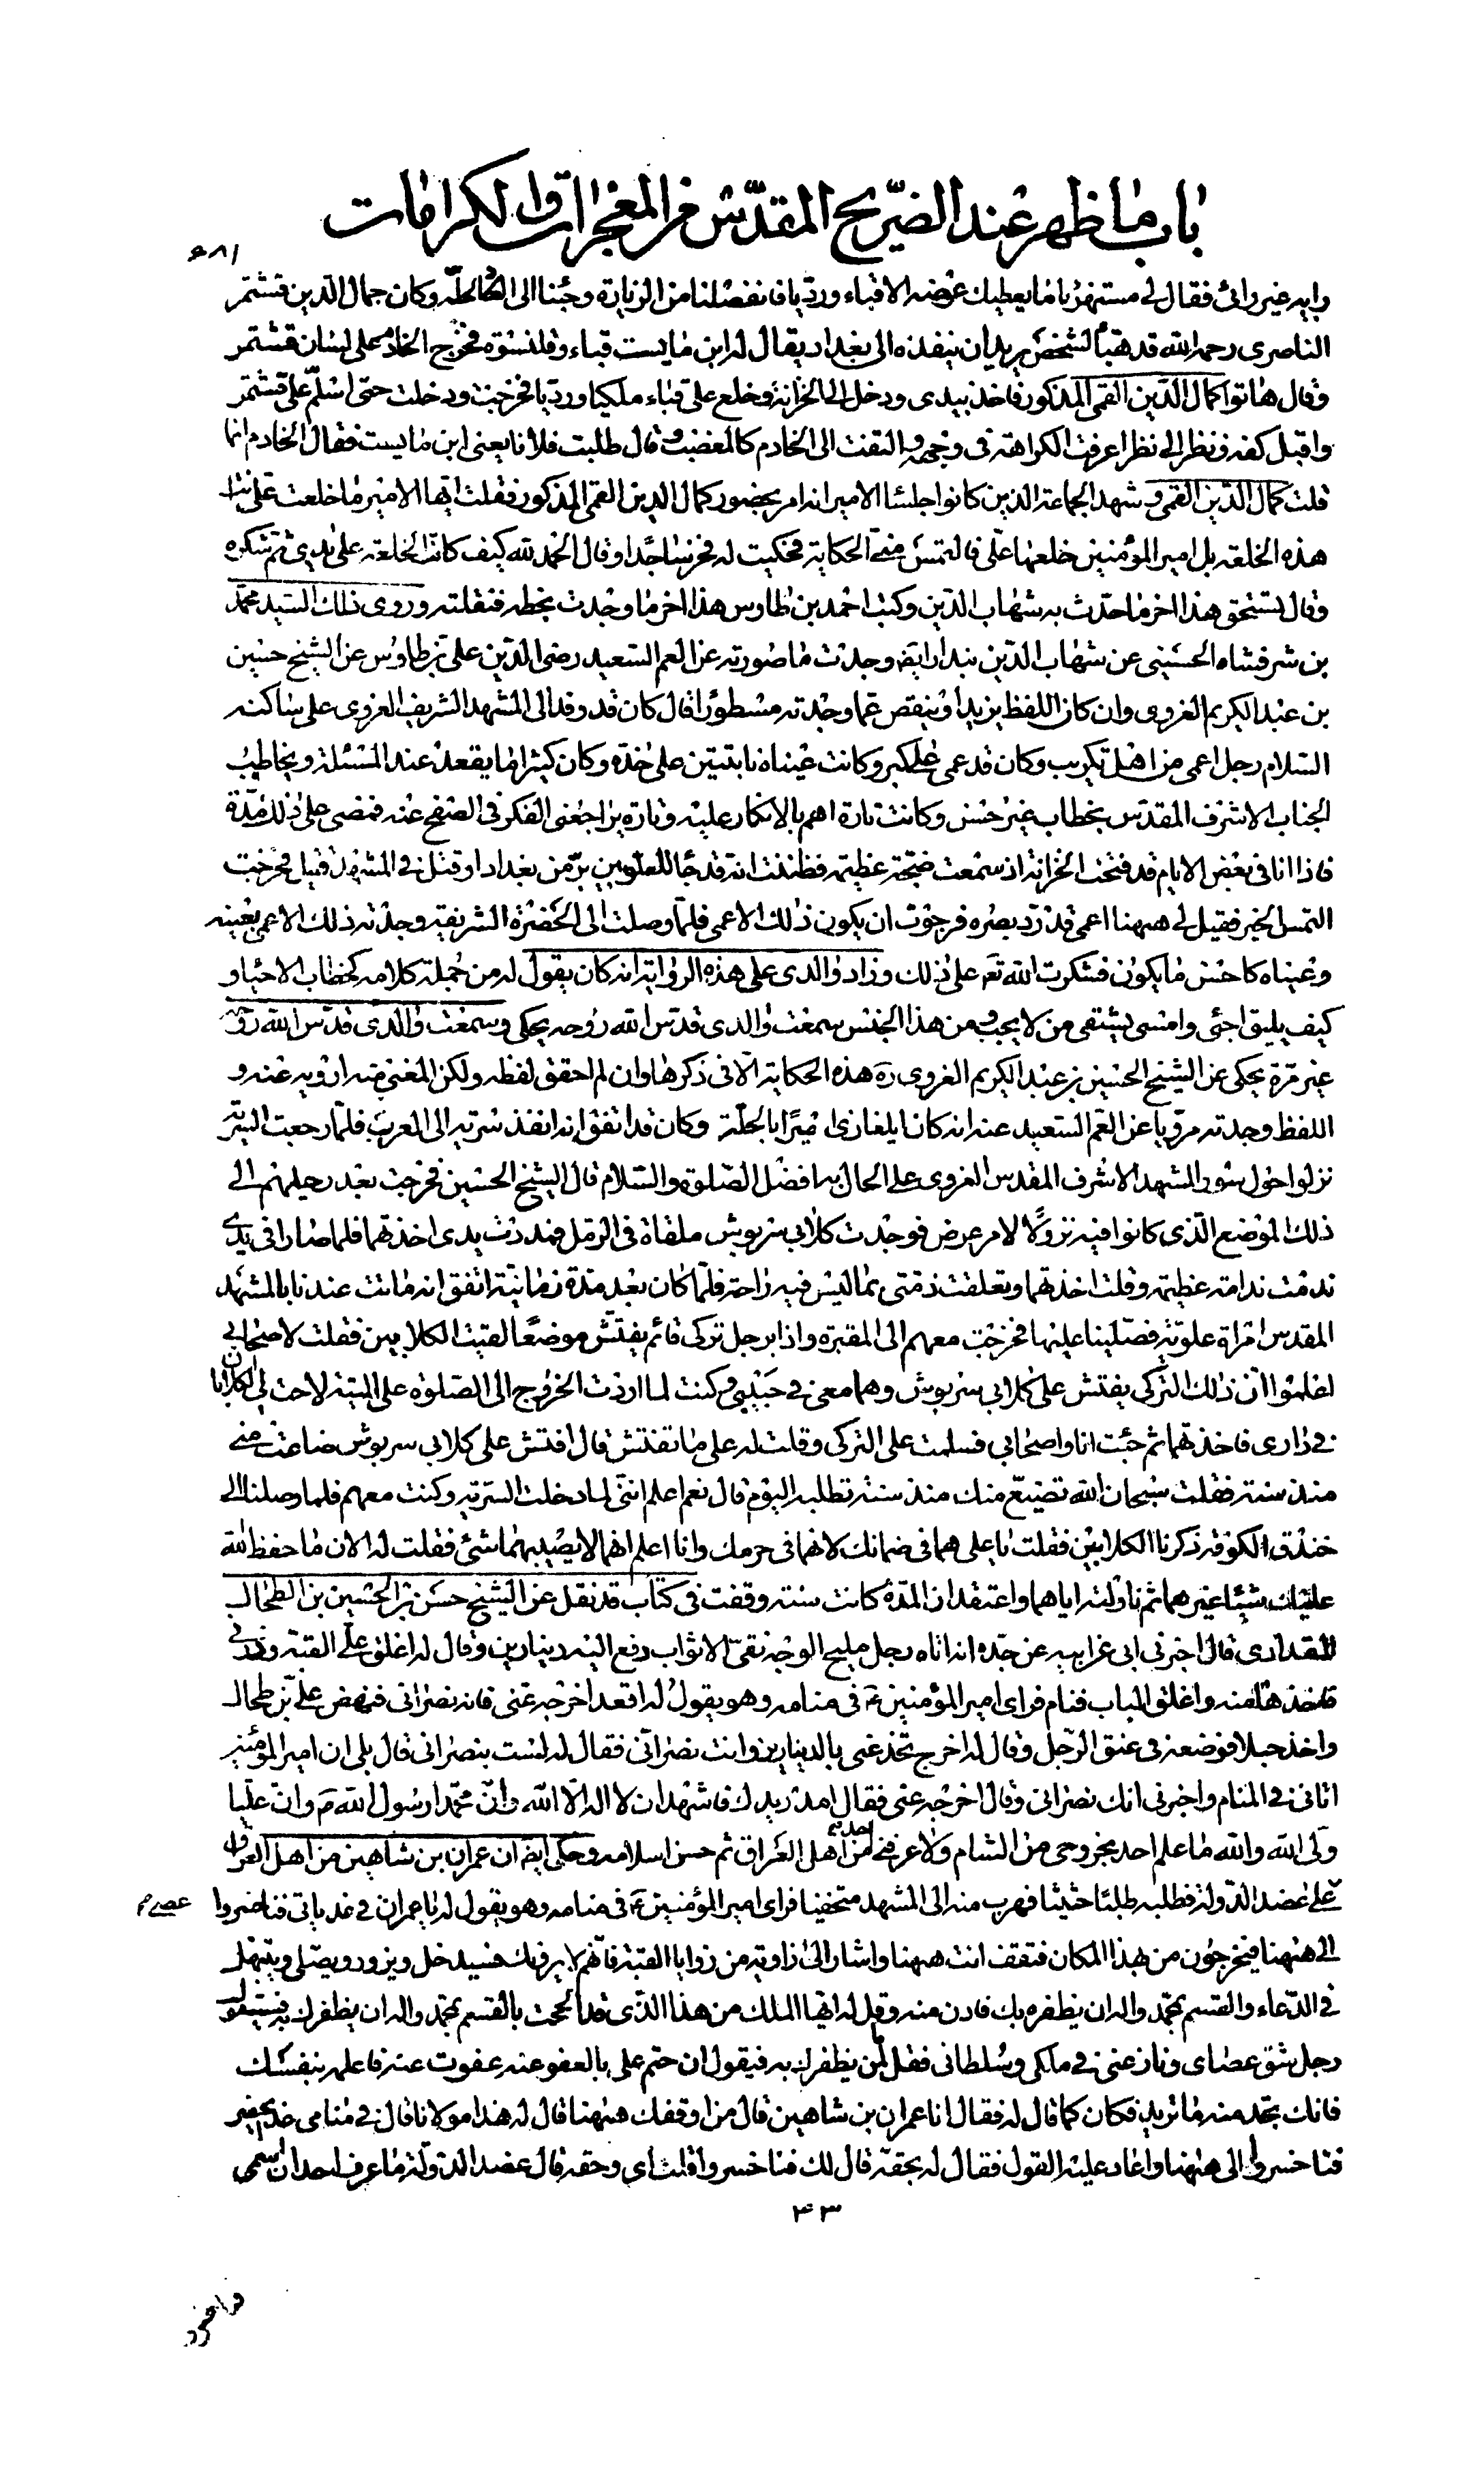 باب ما ظهر عند الضريح المقدّس من المعجزات والكرامات
رايه غير رائى فقال لى مستهزئا ما يعطيك عوضه الا قباء ورديا فانفصلنا من الزيارة وجئنا الى الحلة وكان جمال الدين قشتمر
الناصرى رحمه الله قد هيأ لشخص يريد ان ينفذه الى بغداد يقال له ابن مايست قباء وقلنسوة فخرج الخادم على لسان قشتمر
وقال هاتوا كمال الدين القمى المذكور فاخذ بيدى ودخل الى الخزانة وخلع على قباء ملكيا ورديا فخرجت ودخلت حتى اسلّم على قشتمر
واقبل كفه فنظر الى نظرا عرفت الكراهة فى وجهه والتفت الى الخادم كالمغضب وقال طلبت فلانا يعنى ابن مايست فقال الخادم انما
قلت كمال الدين القمى وشهد الجماعة الذين كانوا جلسا الامير انه امر بحضور كمال الدين القمى المذكور فقلت ايها الامير ما خلعت على انت
هذه الخلعة بل امير المؤمنين خلعها علّى فالتمس منى الحكاية فحكيت له فخر ساجدا وقال الحمد لله كيف كانت الخلعة على يدى ثم شكره
وقال تستحق هذا اخر ما حدّث به شهاب الدين وكتب احمد بن طاوس هذا اخر ما وجدت بخطه فنقلته وروى ذلك السيد محمد
بن شرفشاه الحسينى عن شهاب الدين بندار ايضا وجدت ما صورته عن العم السعيد رضى الدين على بن طاوس عن الشيخ حسين
بن عبد الكريم الغروى وان كان اللفظ يزيد او ينقص عما وجدته مسطورا قال كان قد وفد الى المشهد الشريف الغروى على ساكنه
السلام رجل اعمى من اهل تكريت وكان قد عمى على كبر وكانت عيناه نابتتين على خده وكان كثيرا ما يقعد عند المسئلة ويخاطب
الجناب الاشرف المقدس بخطاب غير حسن وكانت تارة اهم بالانكار عليه وتارة يراجعنى الفكر فى الصفح عنه فمضى على ذلك مدة
فاذا انا فى بعض الايام قد فتحت الخزانة اذ سمعت ضجة عظيمة فظننت انه قد جا للعلويين برّ من بغداد او قتل فى المشهد قتيل فخرجت
التمس الخبر فقيل لى ههنا اعمى قد رد بصره فرجوت ان يكون ذلك الاعمى فلما وصلت الى الحضرة الشريفة وجدته ذلك الاعمى بعينه
وعيناه كاحسن ما يكون فشكرت الله تع على ذلك وزاد والدى على هذه الرواية انه كان يقول له من جملة كلامه كخطاب الاحياء و
كيف يليق اجئى وامسى يشتفى من لا يحب ومن هذا الجنس سمعت والدى قدس الله روحه يحكى وسمعت والدى قدس الله روحه
غير مرة يحكى عن الشيخ الحسين بن عبد الكريم الغروى ره هذه الحكاية الآتى ذكرها وان لم احقق لفظه ولكن المعنى منه ارويه عنه و
اللفظ وجدته مرويا عن العم السعيد عنه انه كان ايلغازى اميرا بالحلّة وكان قد اتفق انه انفذ سرية الى العرب فلما رجعت السرية
نزلوا حول سور المشهد الاشرف المقدس الغروى على الحال به افضل الصلوة والسلام قال الشيخ الحسين فخرجت بعد رحيلهم الى
ذلك الموضع الذى كانوا فيه نزولا لامر عرض فوجدت كلابى سربوش ملقاة فى الرمل فمددت يدى اخذتهما فلما صارا فى يدى
ندمت ندامة عظيمة وقلت اخذتهما وتعلقت ذمتى بما ليس فيه راحة فلما كان بعد مدة زمانية اتفق انه ماتت عندنا بالمشهد
المقدس امراة علوية فصلينا عليها فخرجت معهم الى المقبرة واذا برجل تركى قائم يفتش موضعا لقيت الكلابين فقلت لاصحابى
اعلموا ان ذلك التركى يفتش على كلابى سربوش وهما معى فى جيبى وكنت لما اردت الخروج الى الصلوة على الميتة لاحت لى الكلابان
فى دارى فاخذتهما ثم جئت انا واصحابى فسلمت على التركى وقلت له على ما تفتش قال افتش على كلابى سربوش ضاعت منى
منذ سنة فقلت سبحان الله تضيع منك منذ سنة تطلبه اليوم قال نعم اعلم اننى لما دخلت السرية وكنت معهم فلما وصلنا الى
خندق الكوفة ذكرنا الكلابين فقلت يا على هما فى ضمانك لانهما فى حرمك وانا اعلم انهما لا يصيبهما شئ فقلت له الان ما حفظ الله
عليك شيئا غيرهما ثم ناولته اياهما واعتقد ان المدة كانت سنة وقفت فى كتاب قد نقل عن الشيخ حسن بن الحسين بن الطحال
المقدادى قال اخبرنى ابى عن ابيه عن جده انه اتاه رجل مليح الوجه نقى الاثواب دفع اليه دينارين وقال له اغلق على القبة وذرنى
فاخذهما منه واغلق الباب فنام فراى امير المؤمنين ع فى منامه وهو يقول له اقعد اخرجه عنى فانه نصرانى فنهض على بن طحال
واخذ حبلا فوضعه فى عنق الرجل وقال له اخرج تخدعنى بالدينارين وانت نصرانى فقال له لست بنصرانى قال بلى ان امير المؤمنين
اتانى فى المنام واخبرنى انك نصرانى وقال اخرجه عنى فقال امدد يدك فاشهد ان لا اله الا الله وانّ محمدا رسول الله ص وان عليا
ولى الله والله ما علم احد بخروجى من الشام ولا عرفنى احد من اهل العراق ثم حسن اسلامه وحكى ايضا ان عمران بن شاهين من اهل العراق
عصى م
على عضد الدولة فطلبه طلبا حثيثا فهرب منه الى المشهد متخفيا فراى امير المؤمنين ع فى منامه وهو يقول له يا عمران فى غد ياتى فناخسروا
الى ههنا فيخرجون من بهذا المكان فتقف انت ههنا واشار الى زاوية من زوايا القبة فانهم لا يرونك فسيدخل ويزور ويصلى ويبتهل
فى الدعاء والقسم بمحمد واله ان يظفره بك فادن منه وقل له ايها الملك من هذا الذى قد الححت بالقسم بمحمد واله ان يظفرك به فسيقول
رجل شق عصاى ونازعنى فى ملكى وسلطانى فقل لمن يظفرك به فيقول ان حتم على بالعفو عنه عفوت عنه فاعلمه بنفسك
فانك تجد منه ما تريد فكان كما قال له فقال انا عمران بن شاهين قال من اوقفك ههنا قال له هذا مولانا قال فى منامى غدا يحضر
فناخسروا الى ههنا واعاد عليه القول فقال له بحقه قال لك فناخسرو اقلت اى وحقه قال عضد الدولة ما عرف احد ان اسمى
۴۳